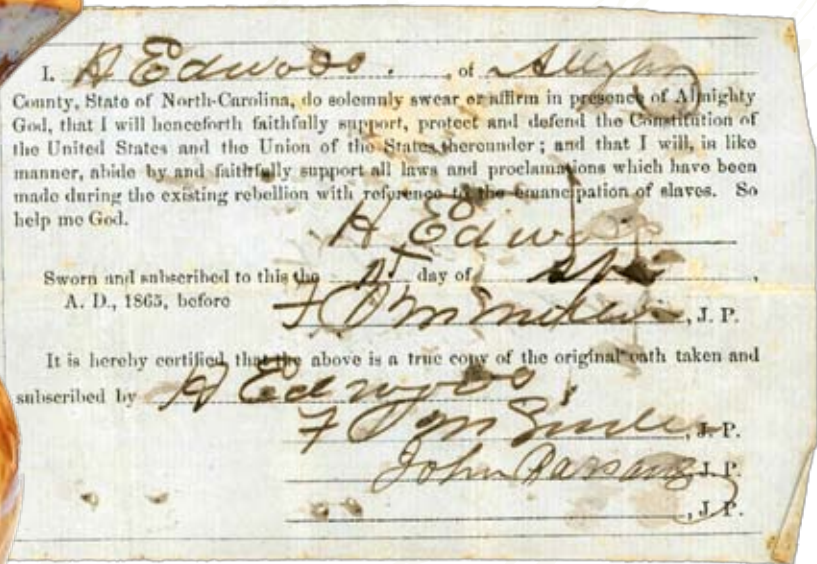 I, H Edwods. , of
County, State of North-Carolina, do solemnly swear or affirm in presence of Almighty
God, that I will henceforth faithfully support, protect and defend the Constitution of
the United States and the Union of the States thereunder; and that I will, in like
manner, abide by and faithfully support all laws and proclamations which have been
made during the existing rebellion with reference to the emancipation of slaves. So
help me God.
H Edwods
Sworn and subscribed to this the day of ,
A. D., 1865, before
, J. P.
It is hereby certified, that the above is a true copy of the original oath taken and
subscribed by H Edwods
, J. P.
John Parsons, J. P.
, J. P.